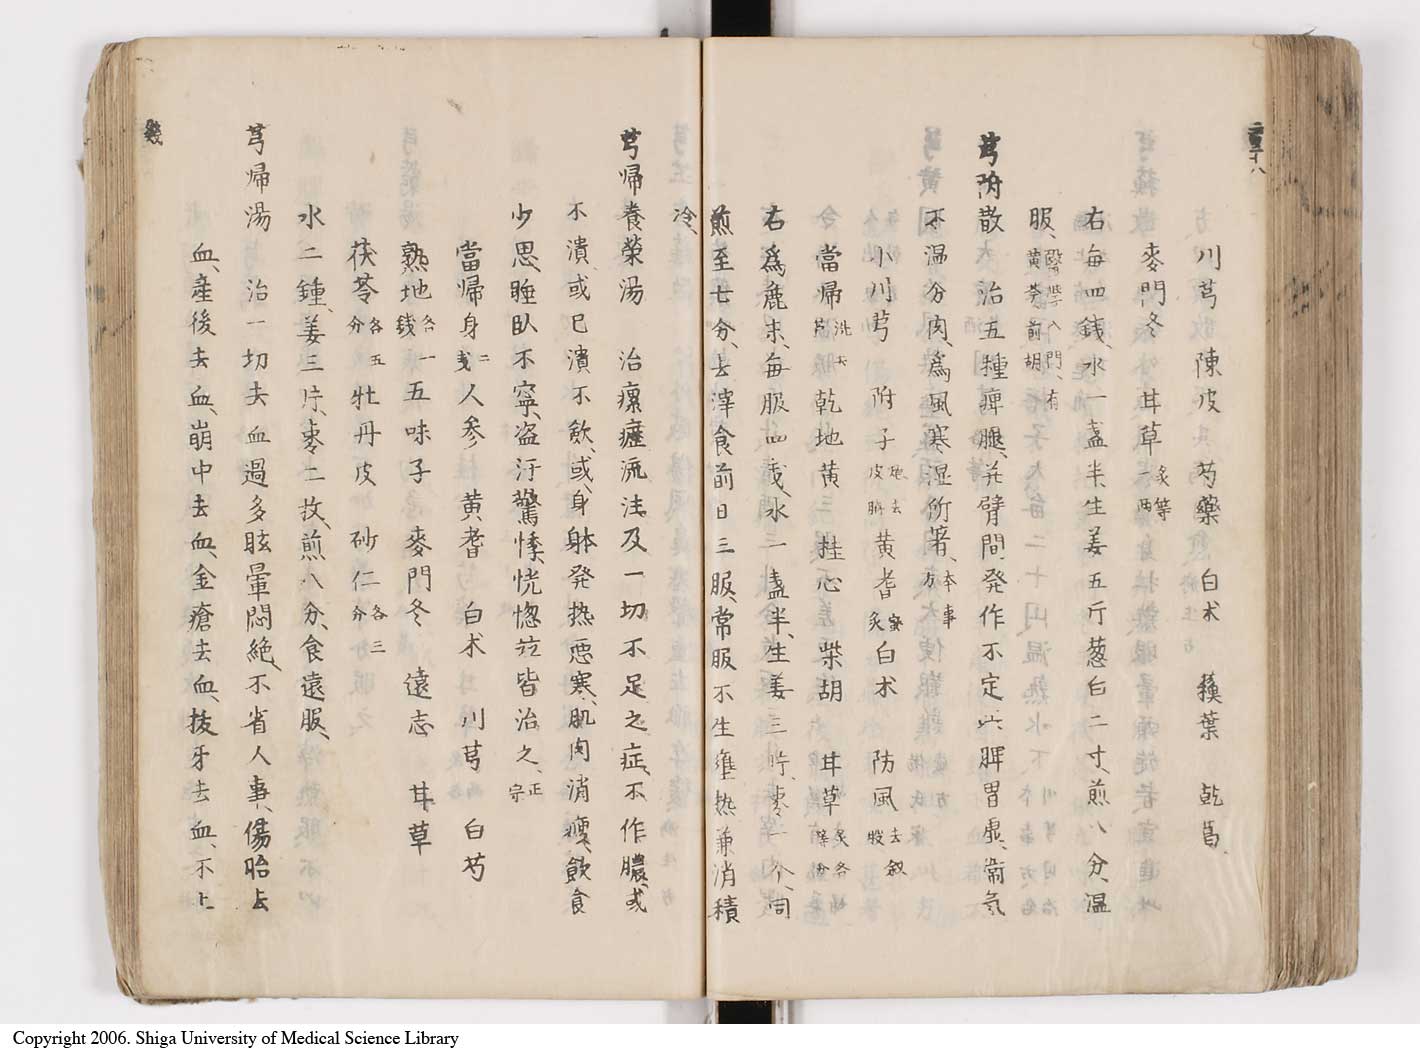 川芎 陳皮 芍藥 白术 蘓葉 乾葛
麥門冬 甘草 炙一兩 等
右每四錢、水一盞半生姜五斤葱白二寸、煎八分、温
服、醫學入門、有黄芩前胡
芎附散 治五種痺腿、并臂間発作不定、此脾胃虚、衛氣
不温分肉、為風寒湿所著、本事方
小川芎 附子 炮去皮臍 黄耆 蜜炙 白术 防風 去釵股
當帰 洗去 乾地黄 桂心 柴胡 甘草 炙各等分
右為麁末、每服四戔、水一盞半、生姜三片、枣一个、同
煎至七分、去滓食前日三服、常服不生壅热兼消積
冷、
芎帰養榮湯 治瘰癧流注及一切不足之症、不作膿、或
不潰、或已潰不飲、或、身躰発热悪寒、肌肉消瘦、飲食
少思、睡臥不寧、盗汗驚悸、恍惚並皆治之、正宗
當帰身 二戔 人参 黄耆 白术 川芎 白芍
熟地 各一錢 五味子 麥門冬 遠志 甘草
茯苓 各五分 牡丹皮 砂仁 各三分
水二鍾、姜三片、枣二枚、煎八分、食遠服、
芎帰湯 治一切去血過多眩暈悶絶、不省人事、傷胎去
血、産後去血、崩中去血、金瘡去血、拔牙去血、不止